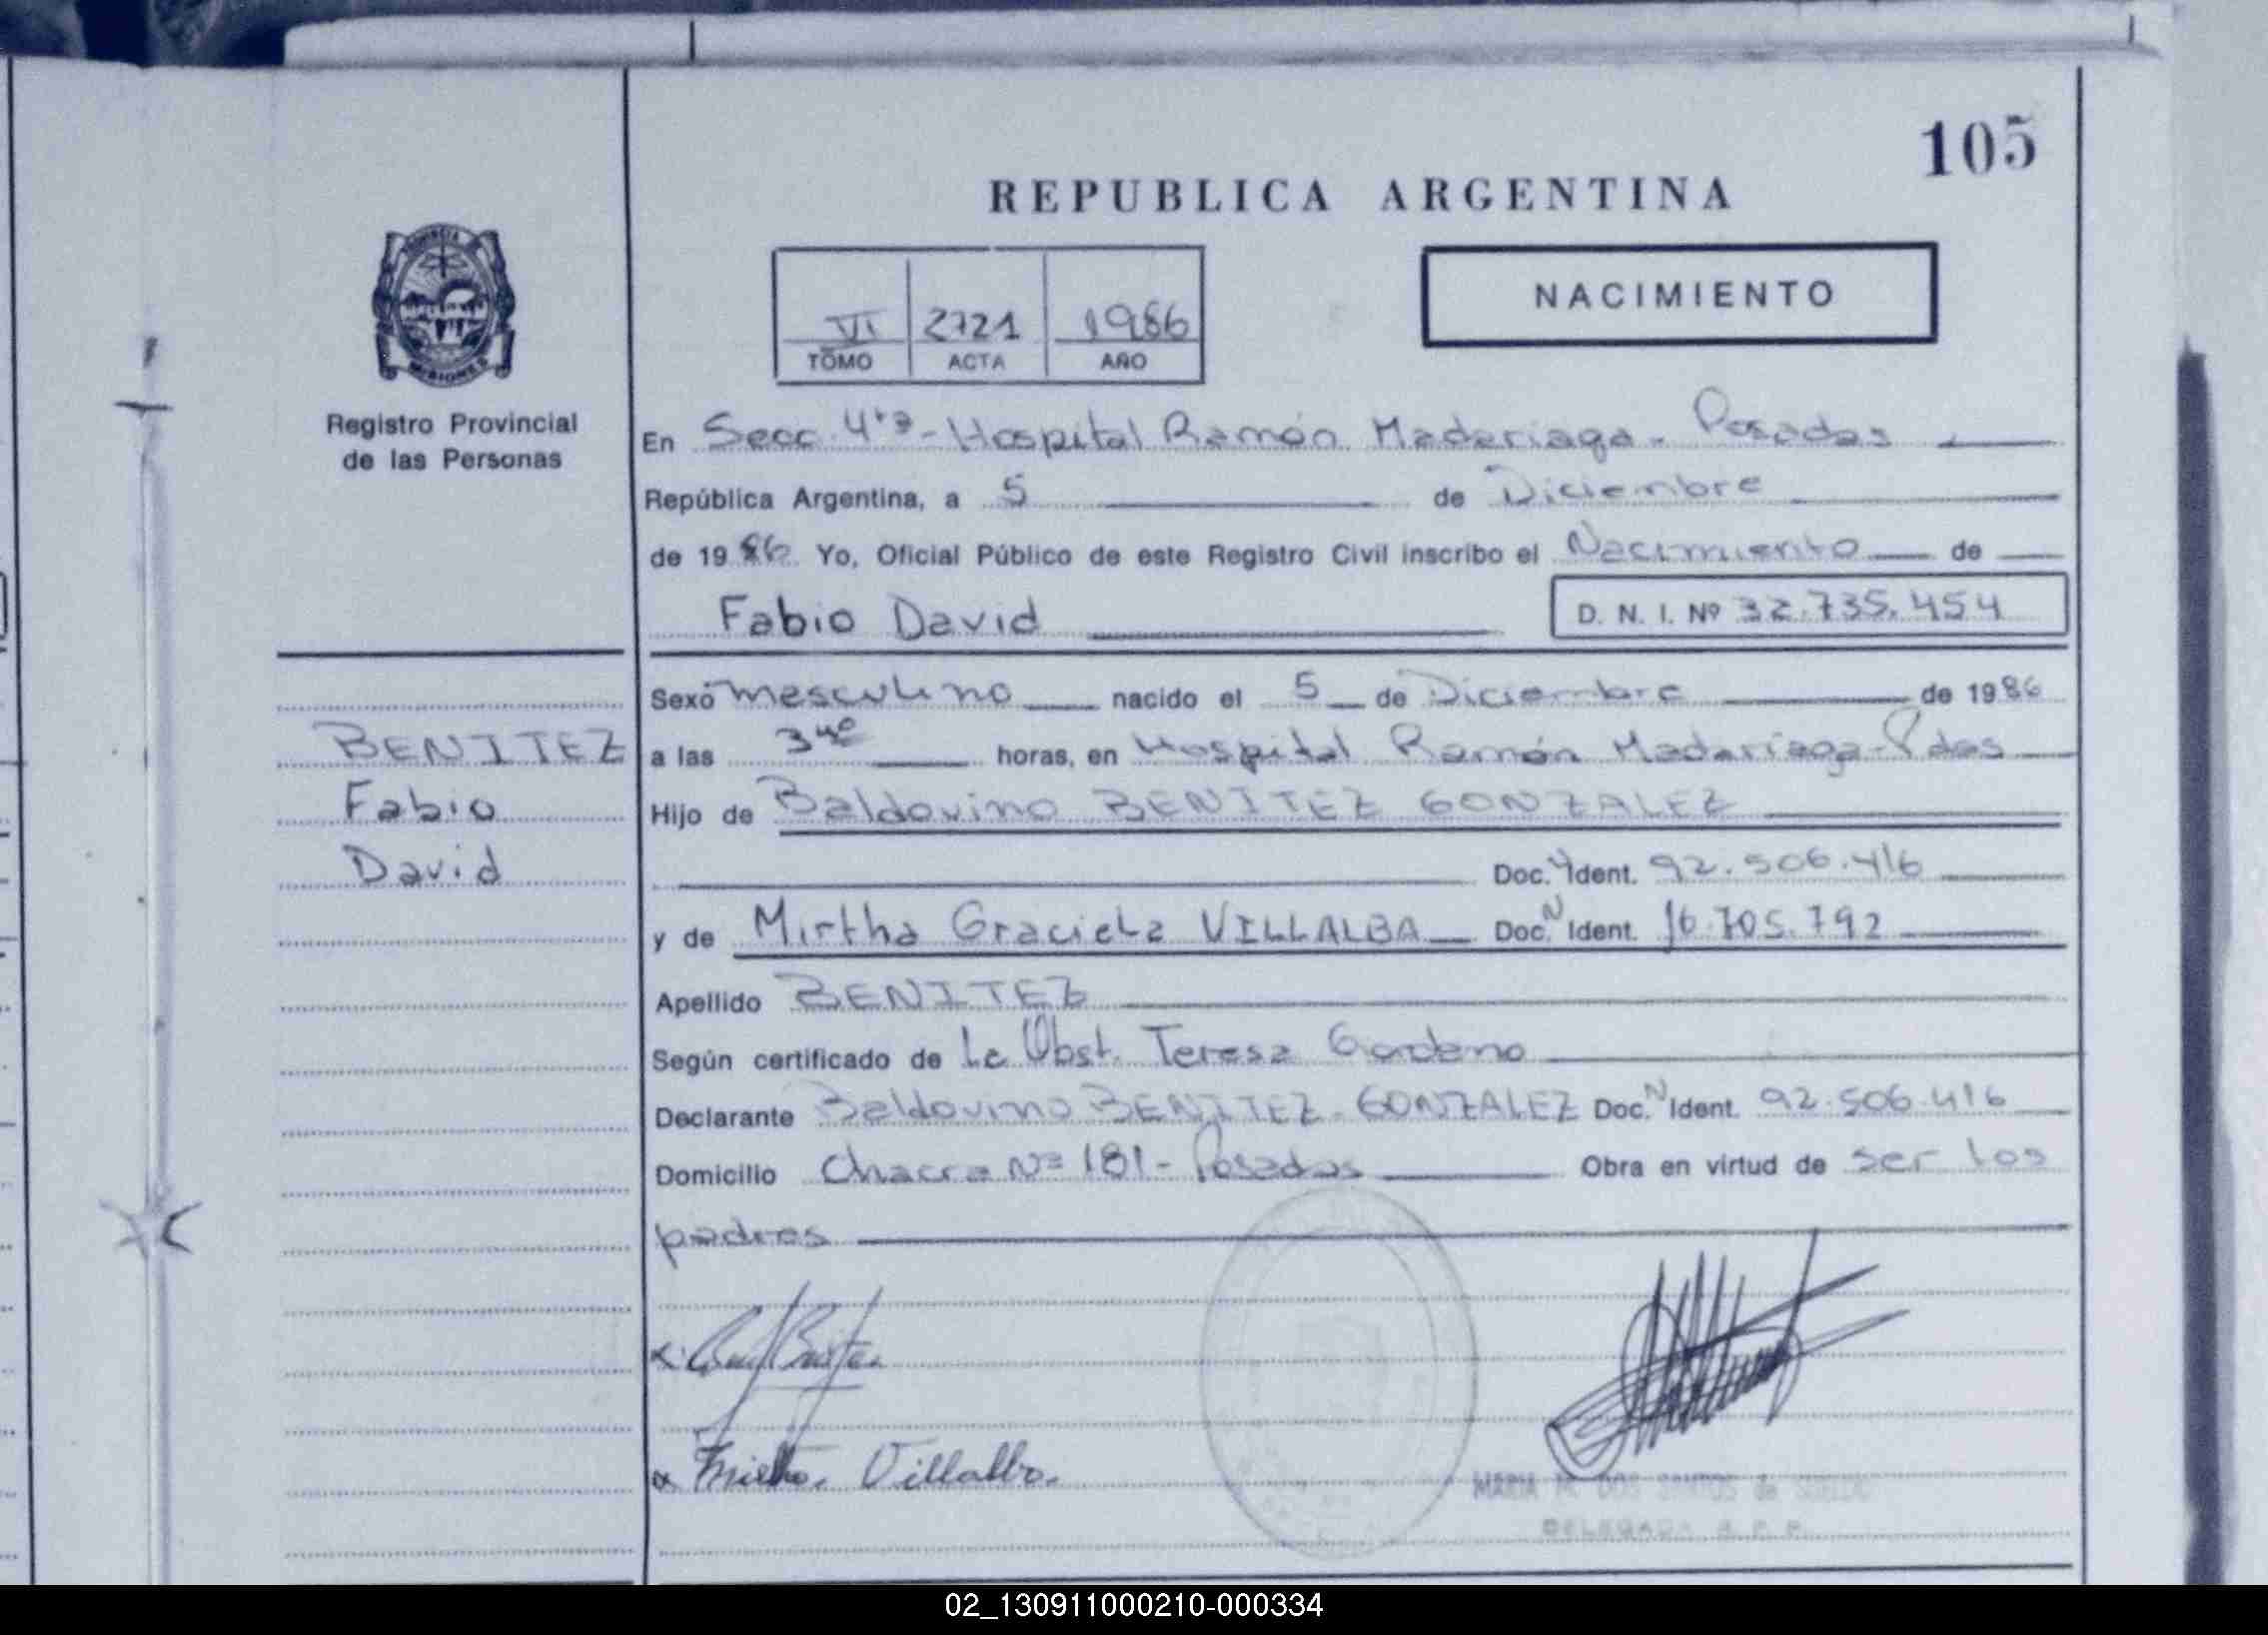 105
REPUBLICA ARGENTINA
VI 2721 1986
TOMO ACTA AÑO
NACIMIENTO
PROVINCIA DE
MISIONES
Registro Provincial
de las Personas
En Secc. 4ta - Hospital Ramón Madariaga - Posadas
República Argentina, a 5 de Diciembre
de 1986 Yo, Oficial Público de este Registro Civil inscribo el Nacimiento de
Fabio David D. N. I. Nº 32.735.454
Sexo masculino nacido el 5 de Diciembre de 1986
a las 3 40 horas, en Hospital Ramón Madariaga - Pdas
Hijo de Baldovino BENITEZ GONZALEZ
Doc. Ident. 92.506.416
y de Mirtha Graciela VILLALBA Doc. N Ident. 16.705.792
Apellido BENITEZ
Según certificado de La Obst. Teresa
Declarante Baldovino BENITEZ - GONZALEZ Doc. N Ident. 92.506.416
Domicilio Chacra Nº 181 - Posadas Obra en virtud de ser los
padres
BENITEZ
Fabio
David
Mirtha Villalba
MARIA M. DOS SANTOS de
DELEGADA R. P. P.
02_130911000210-000334